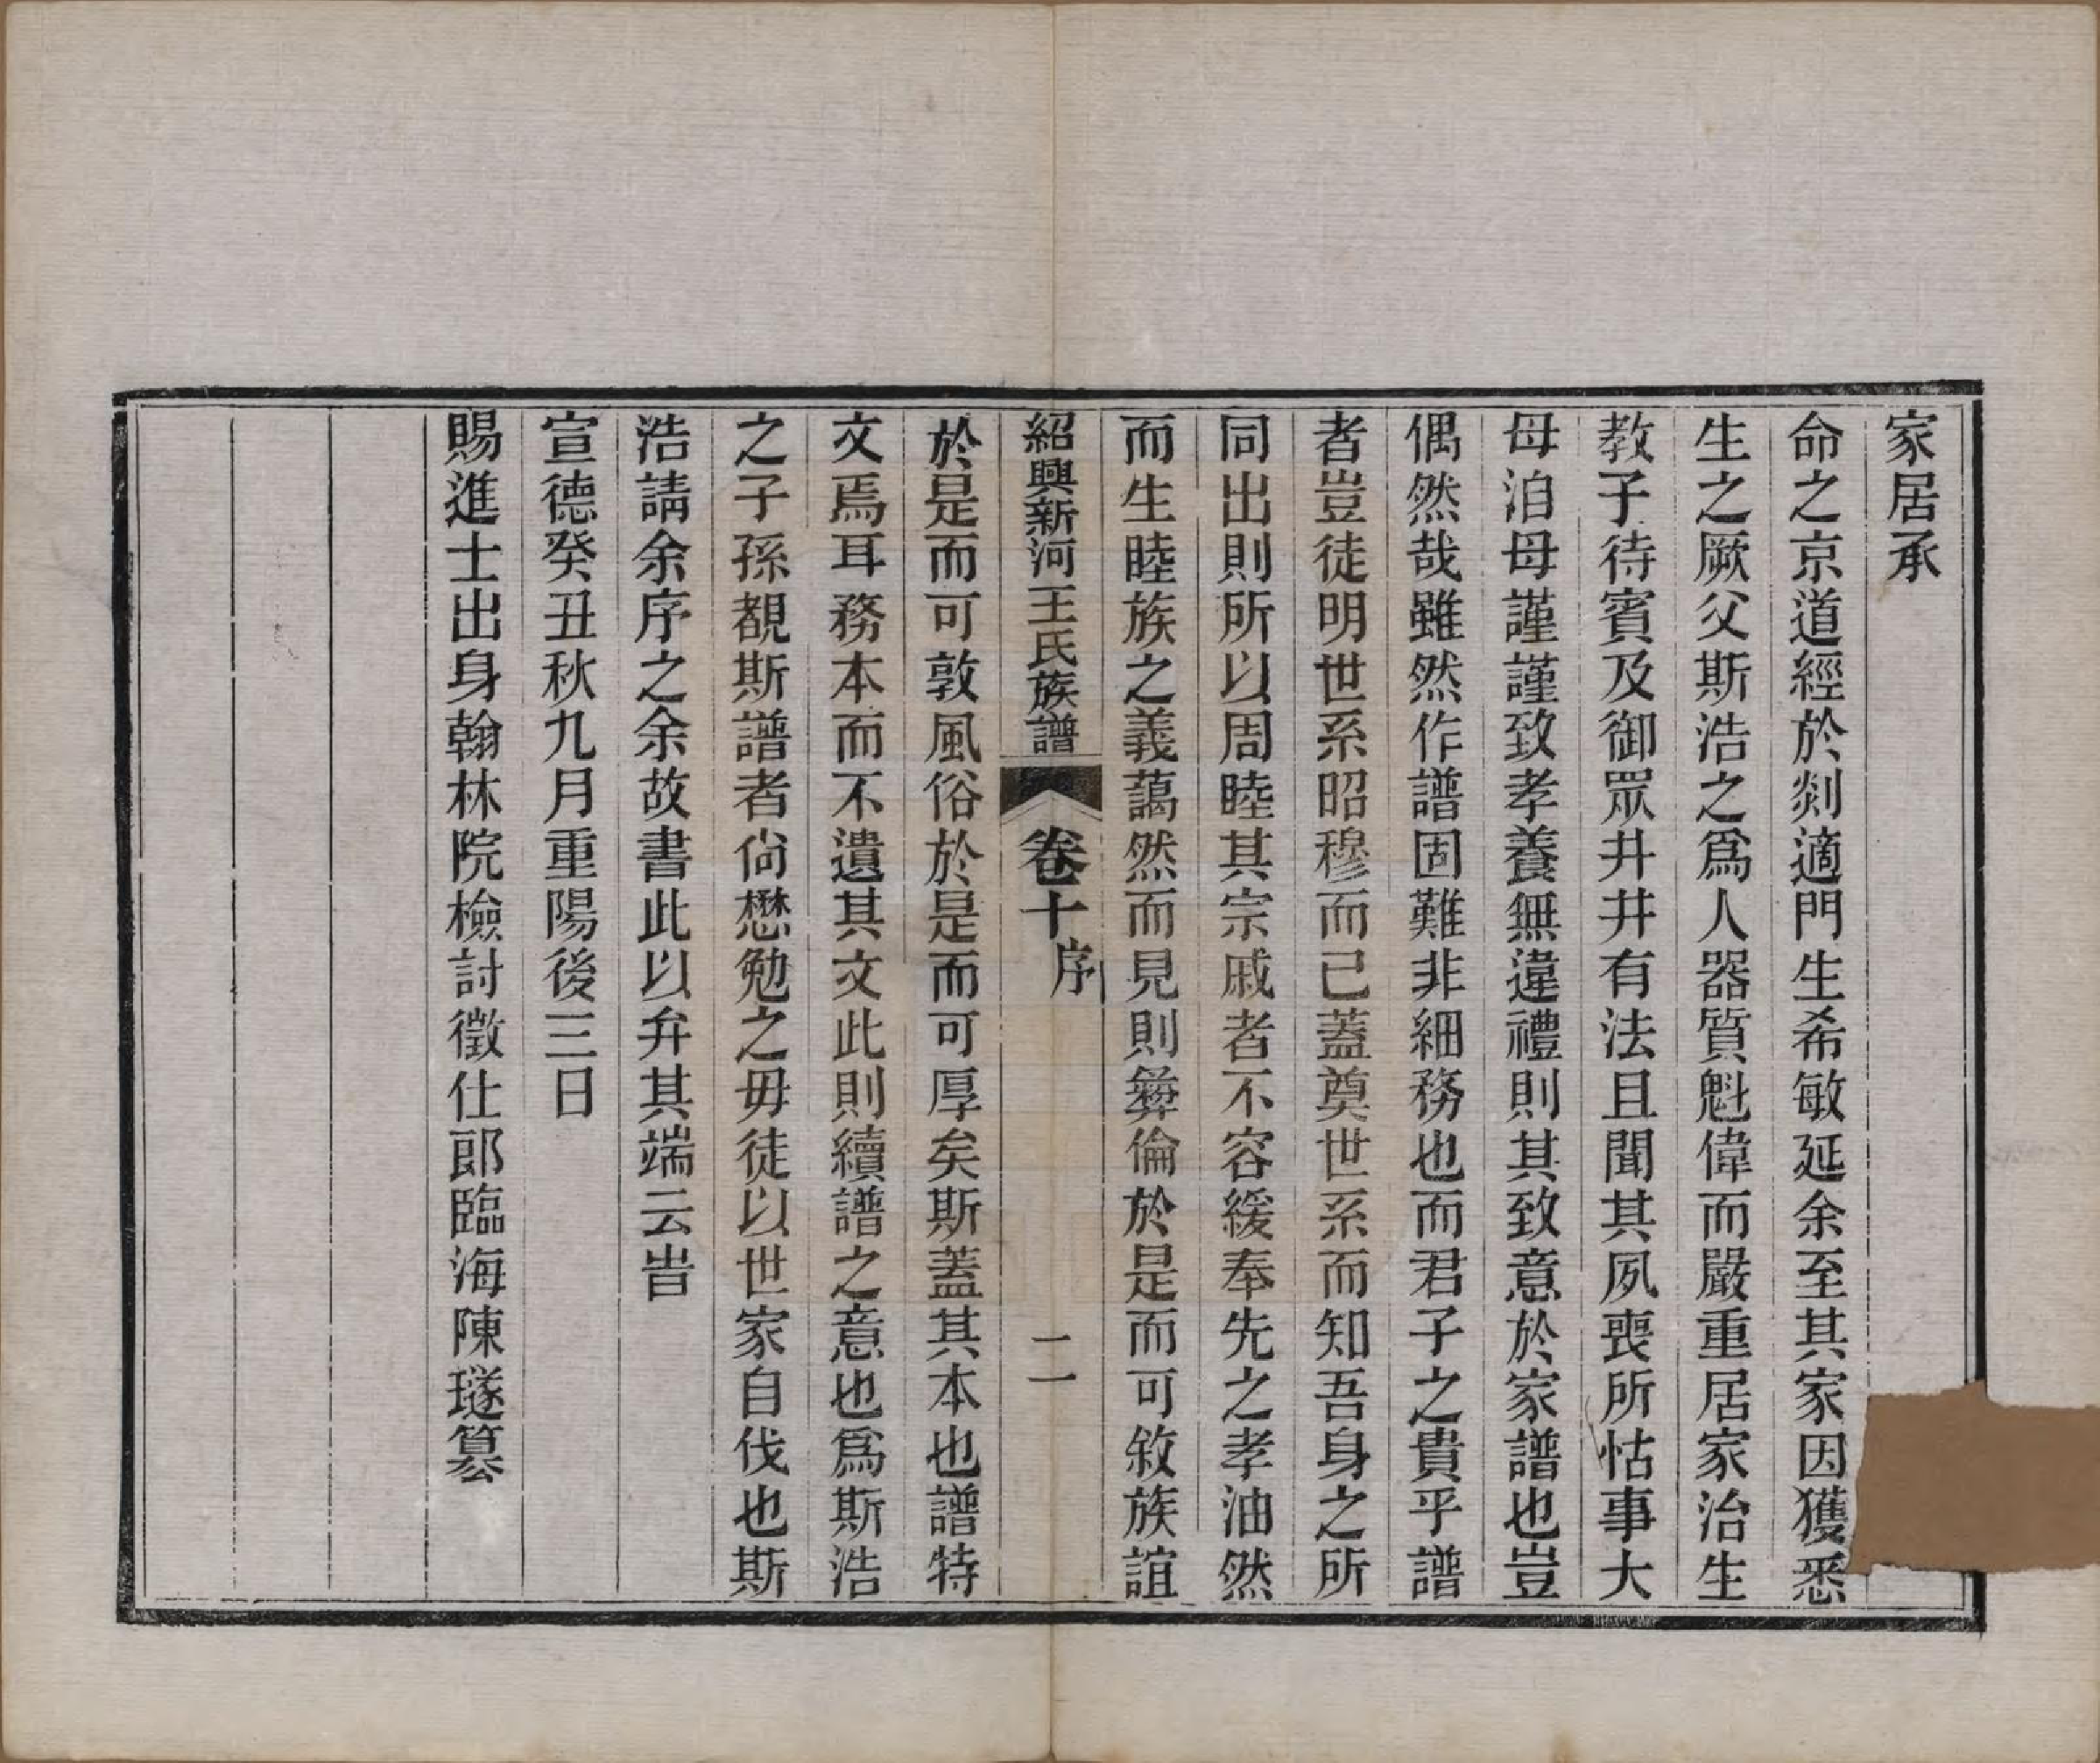 家居承
命之京道經於剡適門生希敏延余至其家因獲悉
生之厥父斯浩之爲人器質魁偉而嚴重居家治生
教子待賓及御眾井井有法且聞其夙喪所怙事大
母洎母謹謹致孝養無違禮則其致意於家譜也豈
偶然哉雖然作譜固難非細務也而君子之貴乎譜
者豈徒明世系昭穆而已蓋奠世系而知吾身之所
同出則所以周睦其宗戚者不容緩奉先之孝油然
而生睦族之義藹然而見則彝倫於是而可敘族誼
紹興新河王氏族譜 卷十序 二
於是而可敦風俗於是而可厚矣斯蓋其本也譜特
文焉耳務本而不遺其文此則續譜之意也爲斯浩
之子孫覩斯譜者尙懋勉之毋徒以世家自伐也斯
浩請余序之余故書此以弁其端云旹
宣德癸丑秋九月重陽後三日
賜進士出身翰林院檢討徵仕郎臨海陳璲纂